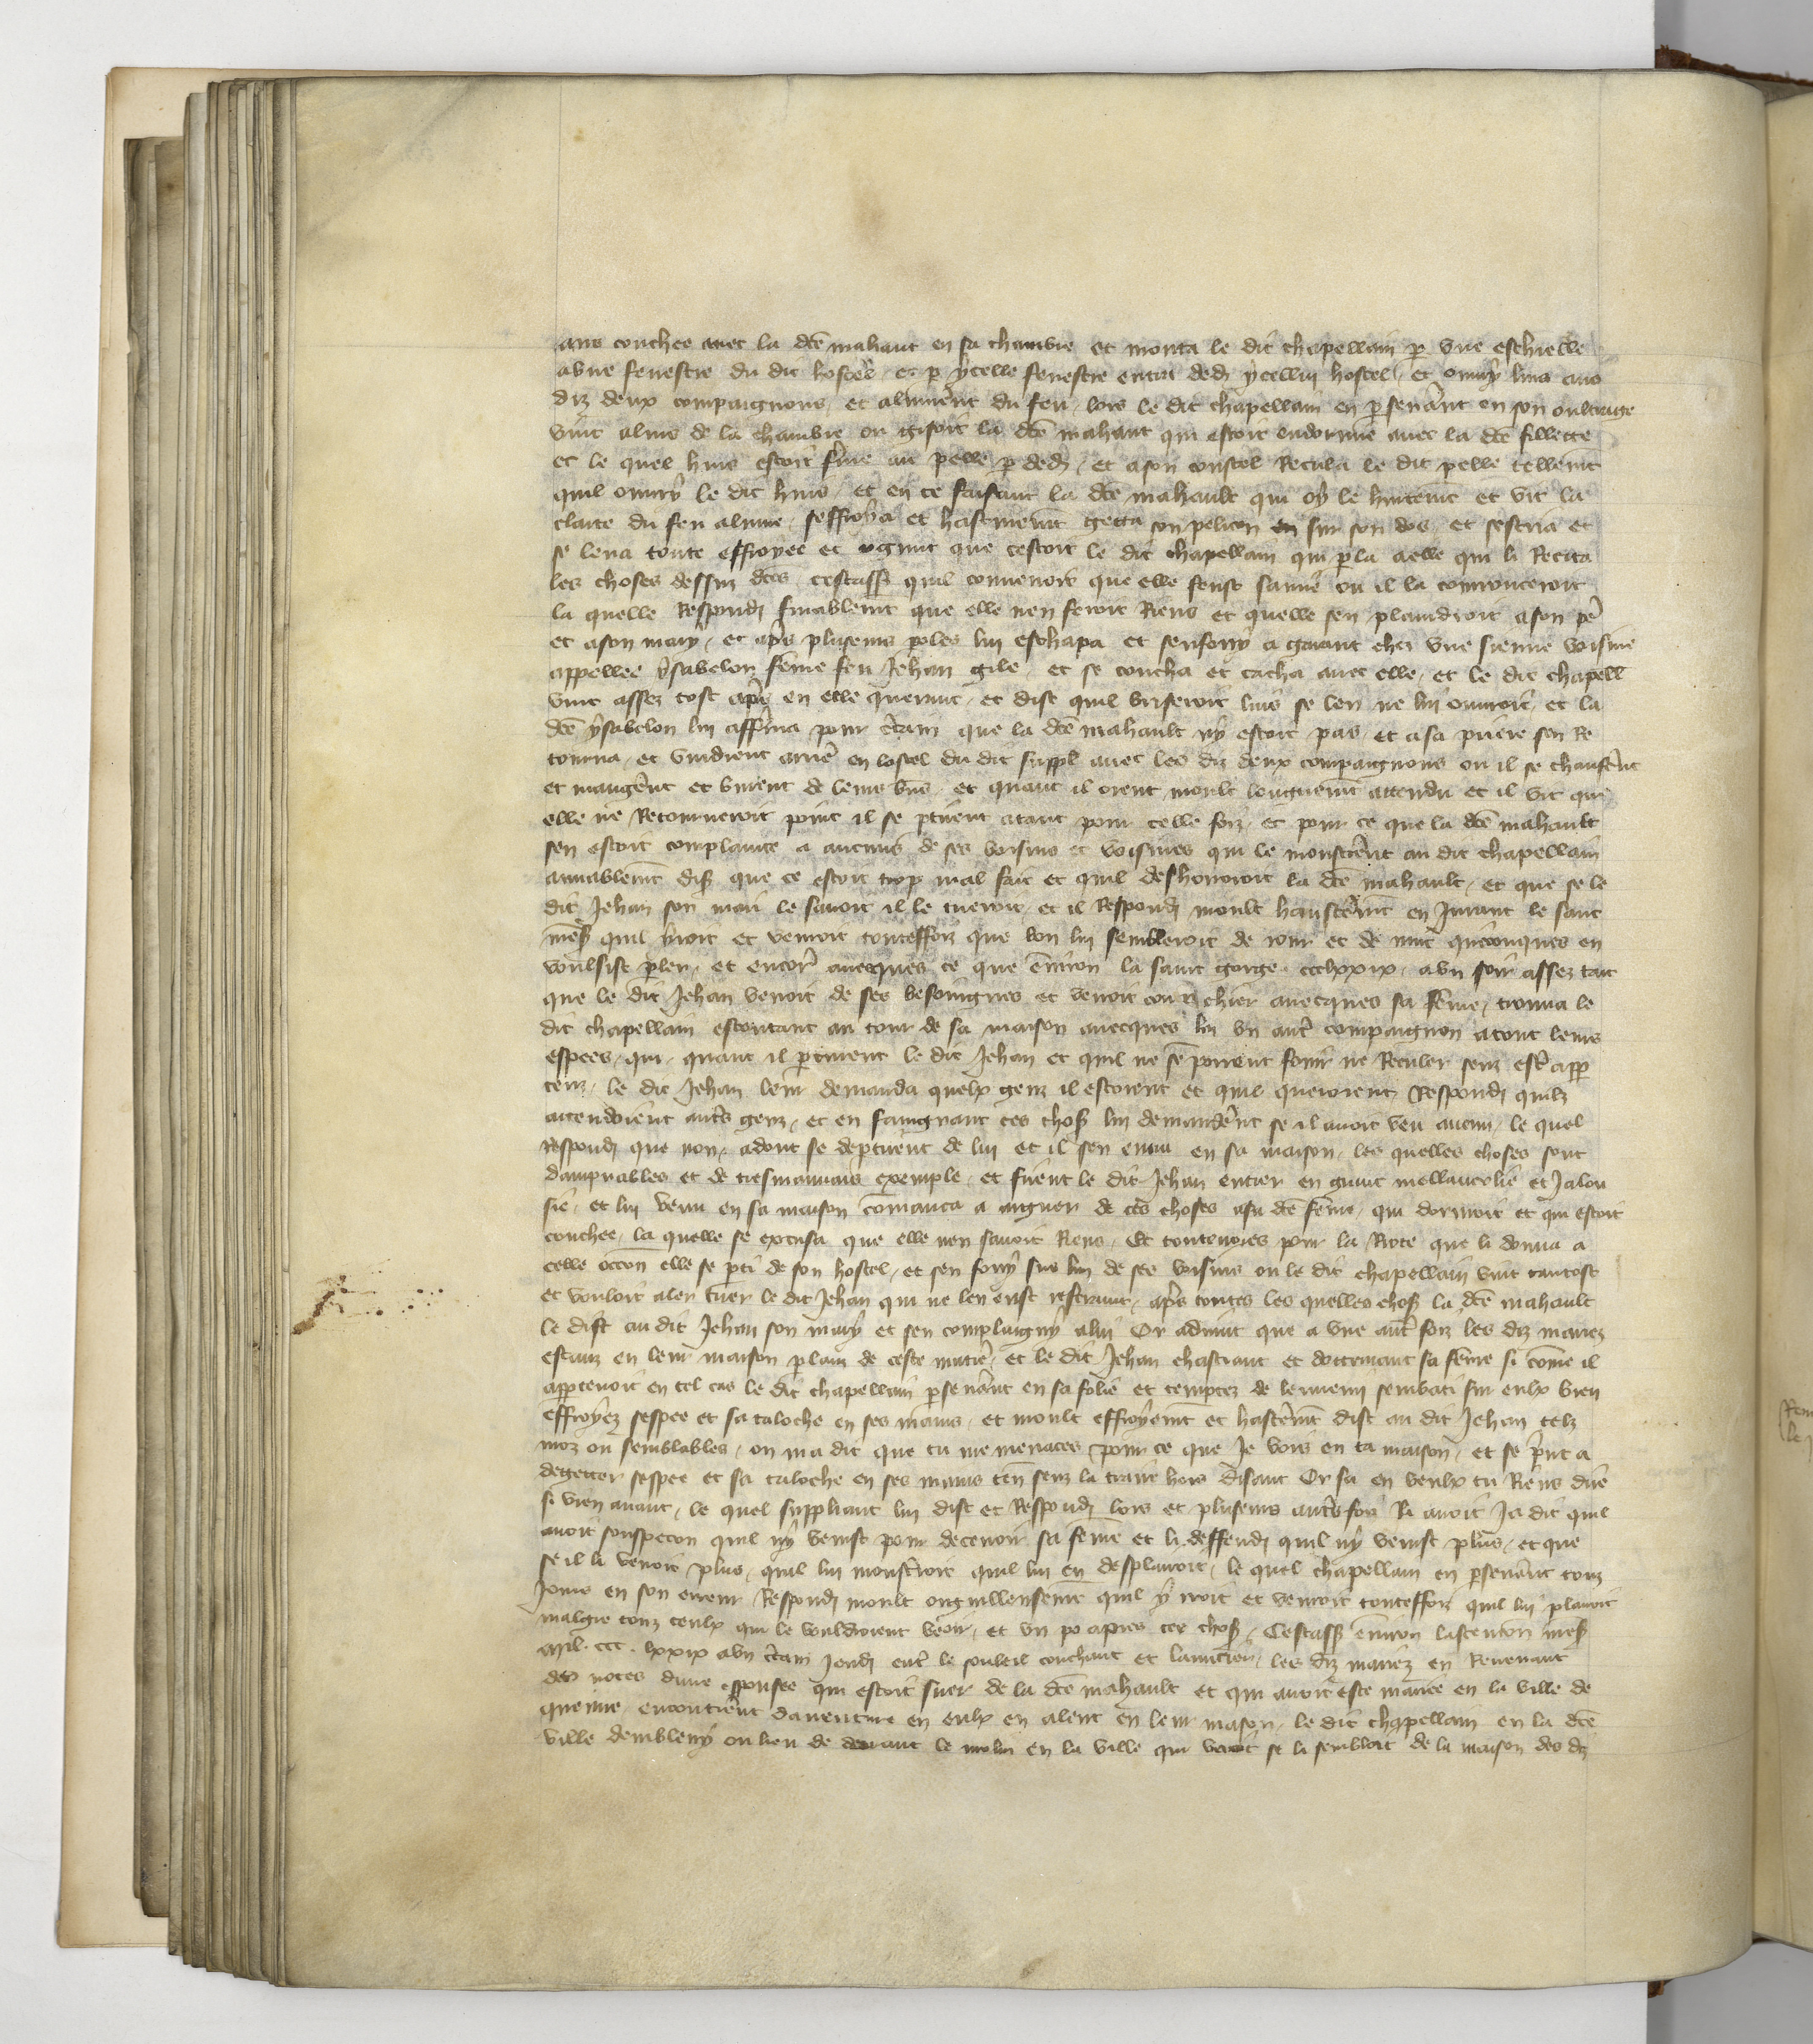 ans couchee avec la dce mahaut en sa chambre et monta le dit chapellain p vne eschielle
a vne fenestre du dit hostel et p ycelle fenestre entra dedz ycellui hostel et ouury luis aus
diz deux compaignons et alumerent du feu lors le dit chapellain en psenant en son oultrage
vint aluis de la chambre ou gisoit la dce mahaut qui estoit endormie auec la dce fillette
et le quel huis estoit fme au pelle p dedz et a son coustel Recula le dit pelle tellemt
quil ouury le dit huis et en ce faisant la dce mahault qui oy le hutemt et vit la
clarte du feu alume seffroya et hastiuemt getta son pelicon sur son dos et sescria et
se leua toute effroyee et cognut que cestoit le dit chapellain qui pla a elle qui li Recita
les choses dessuz dces cestass quil conuenoit que elle feust samie ou il la courrouceroit
la quelle Respondi finablemt que elle nen feroit Riens et quelle sen plaindroit a son pe
et a son mary et aps pluseurs poles lui eschapa et senfouy a garant chei vne sienne voisine
appellee ysabelon feme feu Jehan gile et se coucha et cacha auec elle et le dit chapell
vint assez tost aps en elle querant et dist quil briseroit luis se len ne lui ouuroit et la
dce ysabelon lui afferma pour ctain que la dce mahault ny estoit pas et a sa priere sen Re
tourna et vindrent arrie en lostel du dit suppl auec les diz deux compaignons ou il se chauferent
et mangerent et burent de leurs bns et quant il orent moult longuemt attendu et il vit que
elle ne Retourneroit point il se ptirent atant pour celle foiz et pour ce que la dce mahault
sen estoit complainte a aucuns de ses voisins et voisines qui le monstrent au dit chapellain
amiablemt dis que ce estoit trop mal fait et quil deshonoroit la dce mahault et que se le
dit Jehan son mari le sauoit il le tueroit et il Respondi moult haustemt en Jurant le sanc
quil yroit et venroit touteffoiz que bon lui sembleroit de iour et de nuit queconques en
voulsist pler et encore auecques ce que enuiron la saint george ccclxxix a vn soir assez tart
que le dit Jehan venoit de ses besoingnes et venoit couchier auecques sa feme trouua le
dit chapellain escoutant au tour de sa maison auecques lui vn autre compaignon atout leurs
espees qui quant il pcurent le dit Jehan et quil ne se porrent fouir ne Reculer senz estre app
ceuz le dit Jehan leur demanda quelx genz il estoient et quil queroient Respondi quilz
attendoient autres genz et en faingnant ces chos lui demanderent se il auoit veu aucun le quel
respondi que non adont se deptirent de lui et il sen entra en sa maison les quelles choses sont
dampnables et de tresmauuais exemple et firent le dit Jehan entrer en grant mellancolie et Jalou
sie et lui venu en sa maison comanca a arguer de ces choses a sa dce feme qui dormoit et qui estoit
couchee la quelle se excusa que elle nen sauoit Riens Et toutevoies pour la Riote que li donna a
celle occon elle se pti de son hostel et sen fouy sus lun de ses voisins ou le dit chapellain vint tantost
et vouloit aler tuer le dit Jehan qui ne len eust restraint aps toutes les quelles chos la dce mahault
le dist au dit Jehan son mary et sen complaigny a lui Or aduint que a vne autre foiz les diz mariez
estanz en leur maison plans de ceste matiere et le dit Jehan chastiant et doctrinant sa feme si come il
apptenoit en tel cas le dit chapellain psenant en sa folie et temptez de lennemi sembati sur eulx bien
effroyez sespee et sa taloche en ses mains et moult effroyemt et hastemt dist au dit Jehan telz
moz ou semblables on ma dit que tu me menaces pour ce que Je vois en ta maison et se print a
degetter sespee et sa taloche en ses mains senz la traire hors disant Or sa en veulx tu Riens dire
si vien auant le quel suppliant lui dist et Respondi lors et pluseurs autres fois li auoit Ja dit quil
auoit souspecon quil ny venist pour deceuoir sa feme et li deffendi quil ny venist plus et que
se il li venoit plus quil lui monsteroit quil lui en desplairoit le quel chapellain en psenant touz
Jours en son erreur Respondi moult orguilleusemt quil y iroit et venroit touteffoiz quil lui plairoit
malgre touz ceulx qui le vouldroient veoir et vn po apres ces chos Cestass enuiron lascention
mil ccc lxxix a vn ctain Jeudi entre le souleil couchant et lanuitier les diz mariez en Revenant
des noces dune espousee qui estoit suer de la dce mahault et qui auoit este mariee en la ville de
encontrerent dauenture en eulx en alent en leur mason le dit chapellain en la dce
ville dembleny ou lieu de deuant le molin en la ville qui venoit se li sembloit de la maison des diz